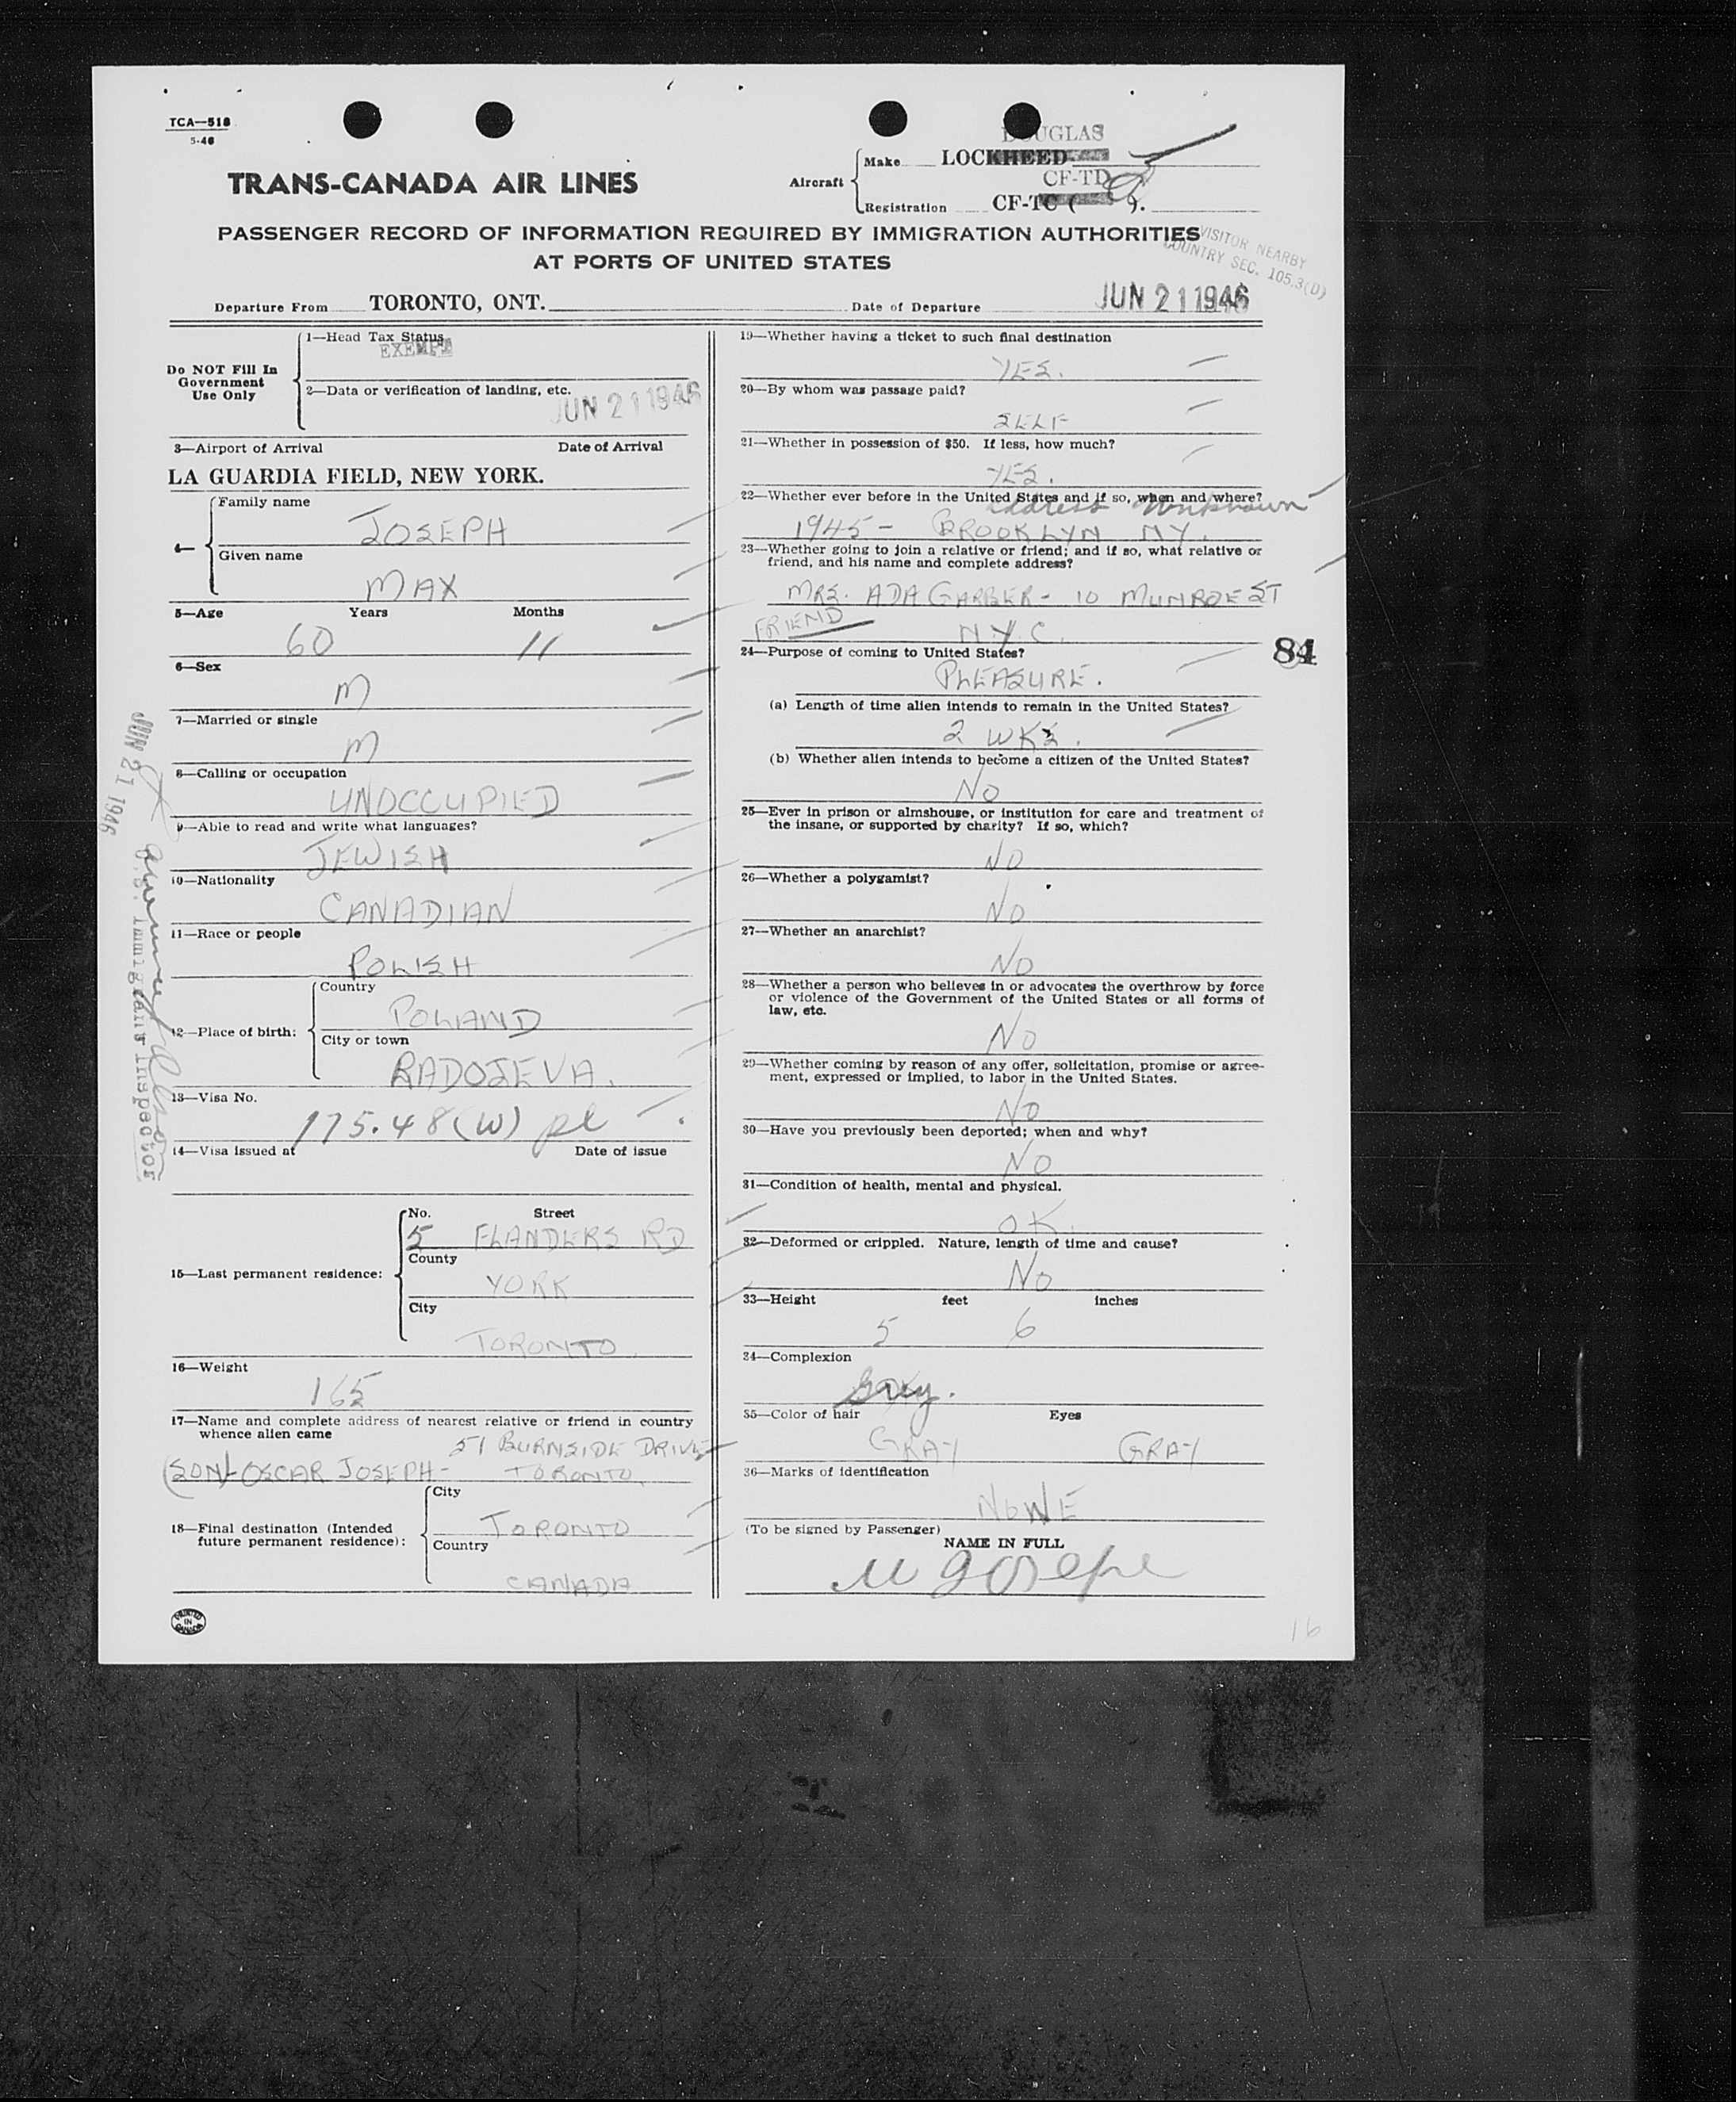 TCA—518
5-46
DOUGLAS
Make LOCKHEED
TRANS-CANADA AIR LINES
Aircraft
CF-TD
Registration CF-TC ( ).
PASSENGER RECORD OF INFORMATION REQUIRED BY IMMIGRATION AUTHORITIES
AT PORTS OF UNITED STATES
VISITOR NEARBY
COUNTRY SEC. 105.3(D)
Departure From TORONTO, ONT. Date of Departure JUN 21 1946
Do NOT Fill In
Government
Use Only
1—Head Tax Status
EXEMPT
2—Data or verification of landing, etc.
JUN 21 1946
3—Airport of Arrival Date of Arrival
LA GUARDIA FIELD, NEW YORK.
4—
Family name
JOSEPH
Given name
MAX
5—Age Years Months
60 11
6—Sex
M
7—Married or single
M
8—Calling or occupation
UNOCCUPIED
9—Able to read and write what languages?
JEWISH
10—Nationality
CANADIAN
11—Race or people
POLISH
12—Place of birth:
Country
POLAND
City or town
RADOSEVA.
13—Visa No.
175.48(W) pl
14—Visa issued at Date of issue
15—Last permanent residence:
No. Street
5 FLANDERS RD
County
YORK
City
TORONTO
16—Weight
165
17—Name and complete address of nearest relative or friend in country
whence alien came
51 BURNSIDE DRIVE
(SON) OSCAR JOSEPH - TORONTO.
18—Final destination (Intended
future permanent residence):
City
TORONTO
Country
CANADA
PRINTED
IN
CANADA
JUN 21 1946
U.S. Immigrant Inspector
19—Whether having a ticket to such final destination
YES.
20—By whom was passage paid?
SELF
21—Whether in possession of $50. If less, how much?
YES.
22—Whether ever before in the United States and if so, when and where?
address Unknown
1945 - BROOKLYN NY.
23—Whether going to join a relative or friend; and if so, what relative or
friend, and his name and complete address?
MRS. ADA GARBER - 10 MUNROE ST
FRIEND N.Y.C.
84
24—Purpose of coming to United States?
PLEASURE.
(a) Length of time alien intends to remain in the United States?
2 WKS.
(b) Whether alien intends to become a citizen of the United States?
NO
25—Ever in prison or almshouse, or institution for care and treatment of
the insane, or supported by charity? If so, which?
NO
26—Whether a polygamist?
NO
27—Whether an anarchist?
NO
28—Whether a person who believes in or advocates the overthrow by force
or violence of the Government of the United States or all forms of
law, etc.
NO
29—Whether coming by reason of any offer, solicitation, promise or agree-
ment, expressed or implied, to labor in the United States.
NO
30—Have you previously been deported; when and why?
NO
31—Condition of health, mental and physical.
OK.
32—Deformed or crippled. Nature, length of time and cause?
NO
33—Height feet inches
5 6
34—Complexion
35—Color of hair Eyes
GRAY GRAY
36—Marks of identification
NONE
(To be signed by Passenger)
NAME IN FULL
M Joseph
16